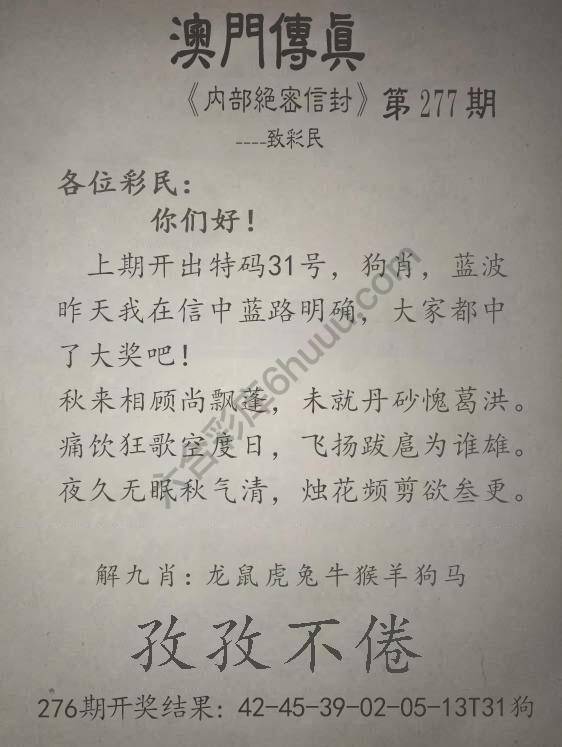 澳門傳眞
《内部絕密信封》第277期
----致彩民
各位彩民：
你们好！
上期开出特码31号，狗肖，蓝波
昨天我在信中蓝路明确，大家都中
了大奖吧！
秋来相顾尚飘蓬，未就丹砂愧葛洪。
痛饮狂歌空度日，飞扬跋扈为谁雄。
夜久无眠秋气清，烛花频剪欲叁更。
解九肖：龙鼠虎兔牛猴羊狗马
孜孜不倦
276期开奖结果：42-45-39-02-05-13T31狗
六合彩库6huuu.com